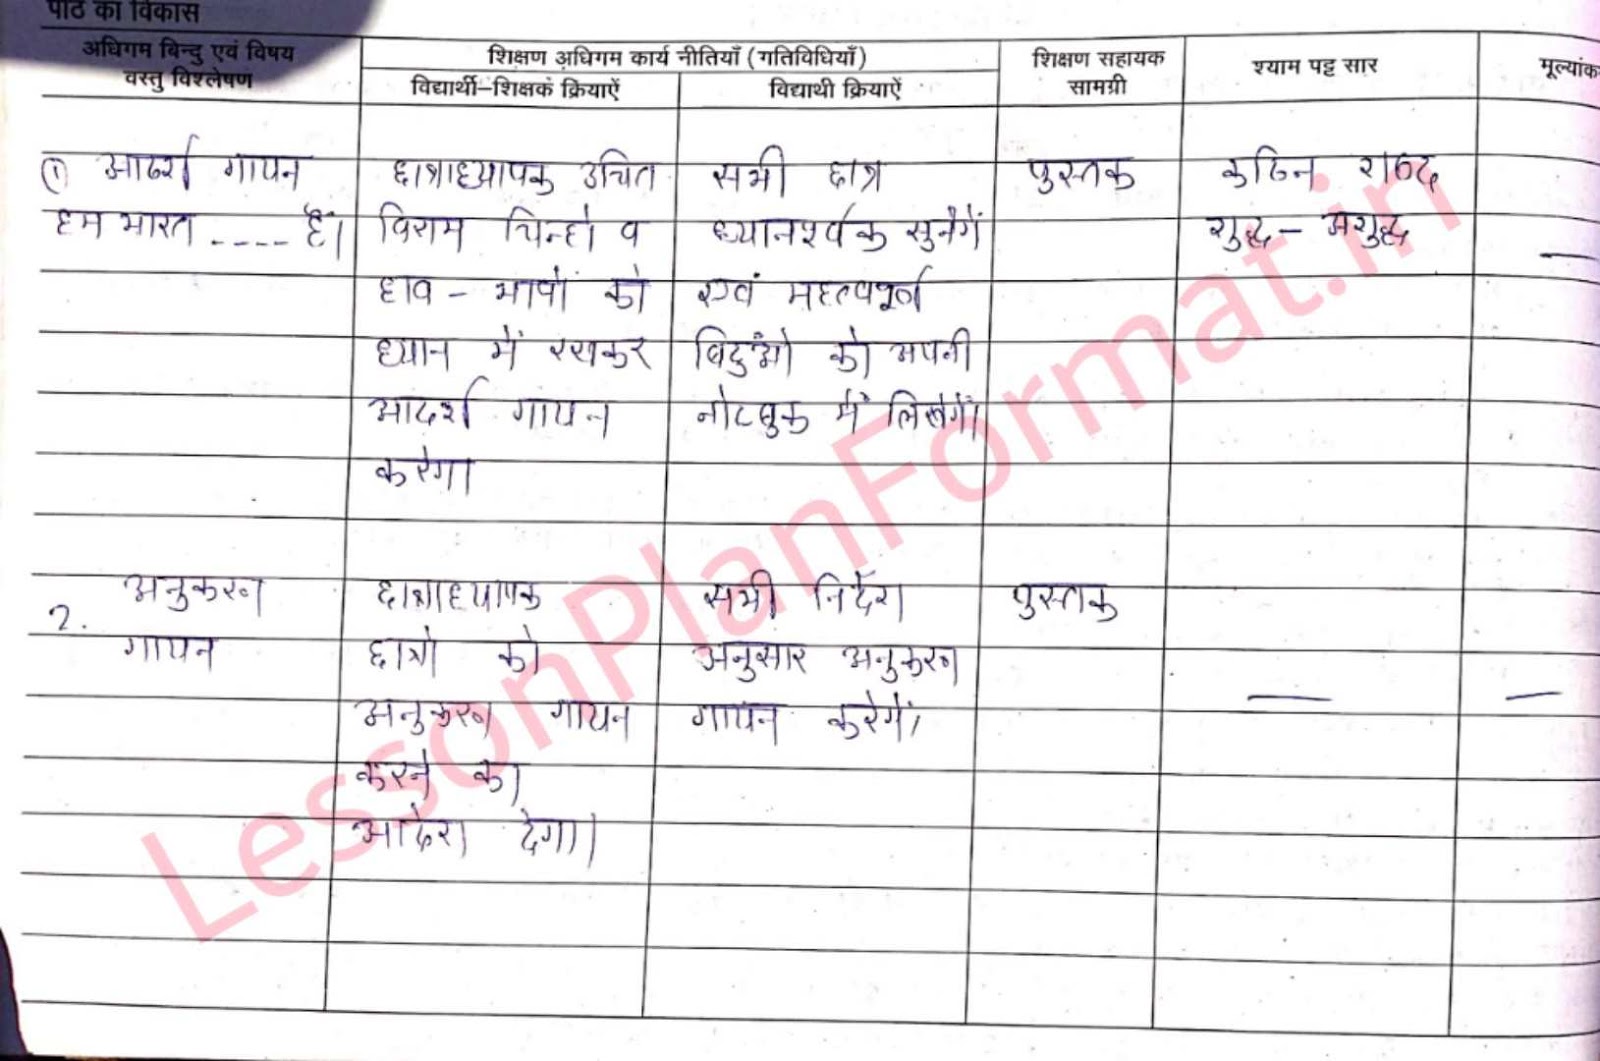 पाठ का विकास
अधिगम बिन्दु एवं विषय
वस्तु विश्लेषण
शिक्षण अधिगम कार्य नीतियाँ (गतिविधियाँ)
विद्यार्थी-शिक्षक क्रियाऐं
विद्याथी क्रियाऐं
शिक्षण सहायक
सामग्री
श्याम पट्ट सार
मूल्यांक
① आदर्श गायन
हम भारत ---- हैं।
छात्राध्यापक उचित
विराम चिन्हो व
हाव - भावों को
ध्यान में रखकर
आदर्श गायन
करेगा
सभी छात्र
ध्यानपूर्वक सुनेगें
एवं महत्वपूर्ण
बिंदुओ को अपनी
नोटबुक में लिखेगें।
पुस्तक
कठिन शब्द
शुद्ध - अशुद्ध
—
2. अनुकरण
गायन
छात्राध्यापक
छात्रो को
अनुकरण गायन
करने का
आदेश देगा।
सभी निर्देश
अनुसार अनुकरण
गायन करेगें।
पुस्तक
—
—
LessonPlanFormat.in